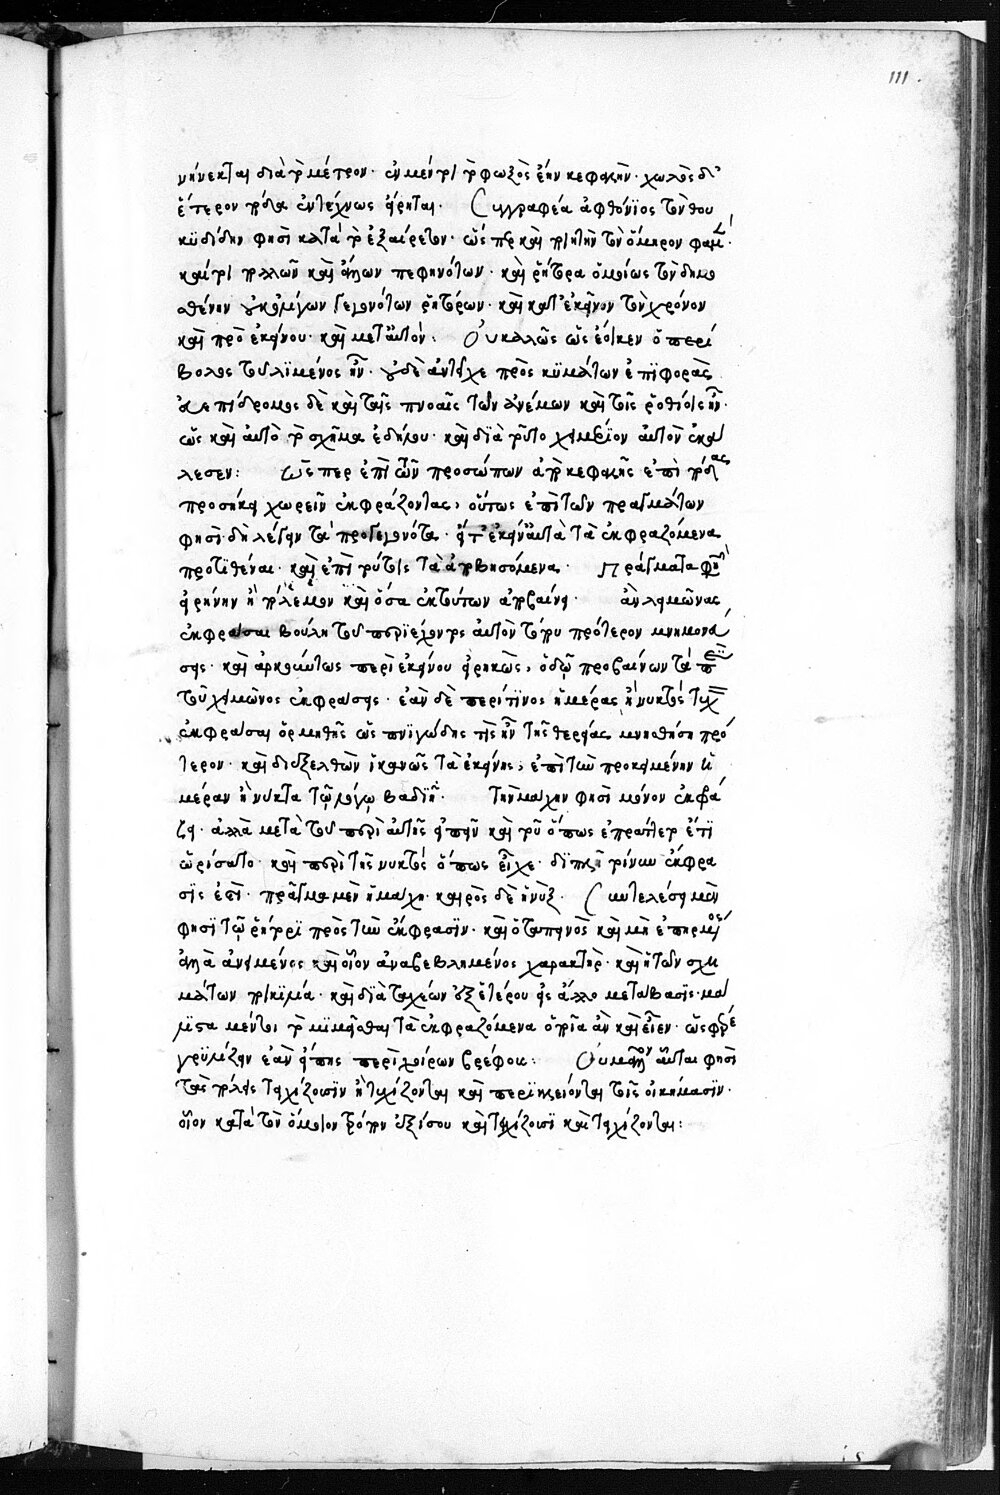 111.
νήνεκται διὰ τὸ μέτρον· ἐν μέντοι τὸ φοξὸς ἔην κεφαλήν· χωλὸς δ'
ἕτερον πόδα ἐντέχνως εἴρηται. Συγγραφέα ἀφθόνιος τὸν θου
κυδίδην φησὶ κατὰ τὸ ἐξαίρετον· ὥσπερ καὶ ποιητὴν τὸν ὅμηρον φαμέν·
καίτοι πολλῶν καὶ ἄλλων πεφηνότων· καὶ ῥήτορα ὁμοίως τὸν δημο
σθένην οὐκ ὀλίγων γεγονότων ῥητόρων· καὶ κατ' ἐκεῖνον τὸν χρόνον
καὶ πρὸ ἐκείνου καὶ μετ' αὐτόν: Οὐ καλῶς ὡς ἔοικεν ὁ περί
βολος τοῦ λιμένος ἦν· οὐδὲ ἀντεῖχε πρὸς κυμάτων ἐπιφοράς
ἀλλ' ἐπίδρομος δὲ καὶ ταῖς πνοαῖς τῶν ἀνέμων καὶ τοῖς ῥοθίοις ἦν·
ὡς καὶ αὐτὸ τὸ σχῆμα ἐδήλου· καὶ διὰ τοῦτο χυμαῖον αὐτὸν ἐκά
λεσεν: Ὥσπερ ἐπὶ τῶν προσώπων ἀπὸ κεφαλῆς ἐπὶ πόδας
προσήκει χωρεῖν ἐκφράζοντας, οὕτως ἐπὶ τῶν πραγμάτων
φησὶ δεῖ λέγειν τὰ προγεγονότα· εἶτ' ἐκεῖνα αὐτὰ τὰ ἐκφραζόμενα
προτιθέναι· καὶ ἐπὶ τούτοις τὰ ἀποβησόμενα. Πράγματα φησὶ
εἰρήνην ἢ πόλεμον καὶ ὅσα ἐκ τούτων ἀποβαίνει. ἂν λειμῶνας
ἐκφράσαι βούλῃ τοῦ περιέχοντος αὐτὸν τόπου πρότερον μνημονεύ
σεις· καὶ ἀρκούντως περὶ ἐκείνου εἰρηκώς, ὁδῷ προβαίνων τὰ περὶ
τοῦ λειμῶνος ἐκφράσεις· ἐὰν δὲ περί τινος ἡμέρας ἢ νυκτός τυχ
ἐκφράσαι ὁρμηθῇς ὡς πνιγώδης τις ἦν τῆς θερείας μνησθήσῃ πρό
τερον· καὶ διεξελθὼν ἱκανῶς τὰ ἐκείνης, ἐπὶ τὴν προκειμένην ἡ
μέραν ἢ νύκτα τῷ λόγῳ βαδιεῖ. Τὴν μάχην φησὶ μόνον ἐκφρά
ζει· ἀλλὰ μετὰ τοῦ περὶ αὐτῆς εἰπεῖν καὶ τοῦ ὅπως ἐπράττετο ἔτι
ὡρίσατο· καὶ περὶ τῆς νυκτός ὅπως εἶχε· διπλῆ τοίνυν ἔκφρα
σις ἐστί· πρᾶγμα μὲν ἡ μάχη· καιρὸς δὲ ἡ νύξ. Συντελέσει μὲν
φησὶ τῷ ῥήτορι πρὸς τὴν ἔκφρασιν· καὶ ὁ ταπεινὸς καὶ μὴ ἐπηρμένος
ἀλλὰ ἀνειμένος καὶ οἷον ἀναβεβλημένος χαρακτήρ· καὶ ἡ τῶν σχη
μάτων ποικιλία· καὶ διὰ ταχέων ἐξ ἑτέρου εἰς ἄλλο μετάβασις· μά
λιστα μέντοι τὸ μιμεῖσθαι τὰ ἐκφραζόμενα ὁποῖα ἂν καὶ εἶεν· ὥσπερ
γρυλίζειν ἐὰν εἴπῃς περὶ χοίρων βρέφους: Οὐ μόνον αὗται φησὶ
τὰς πόλεις τειχίζουσιν ἢ τειχίζονται καὶ περικλείονται τοῖς οἰκήμασιν·
οἷον κατὰ τὸν ὅμοιον τρόπον ἐξίσου καὶ τειχίζουσι καὶ τειχίζονται: